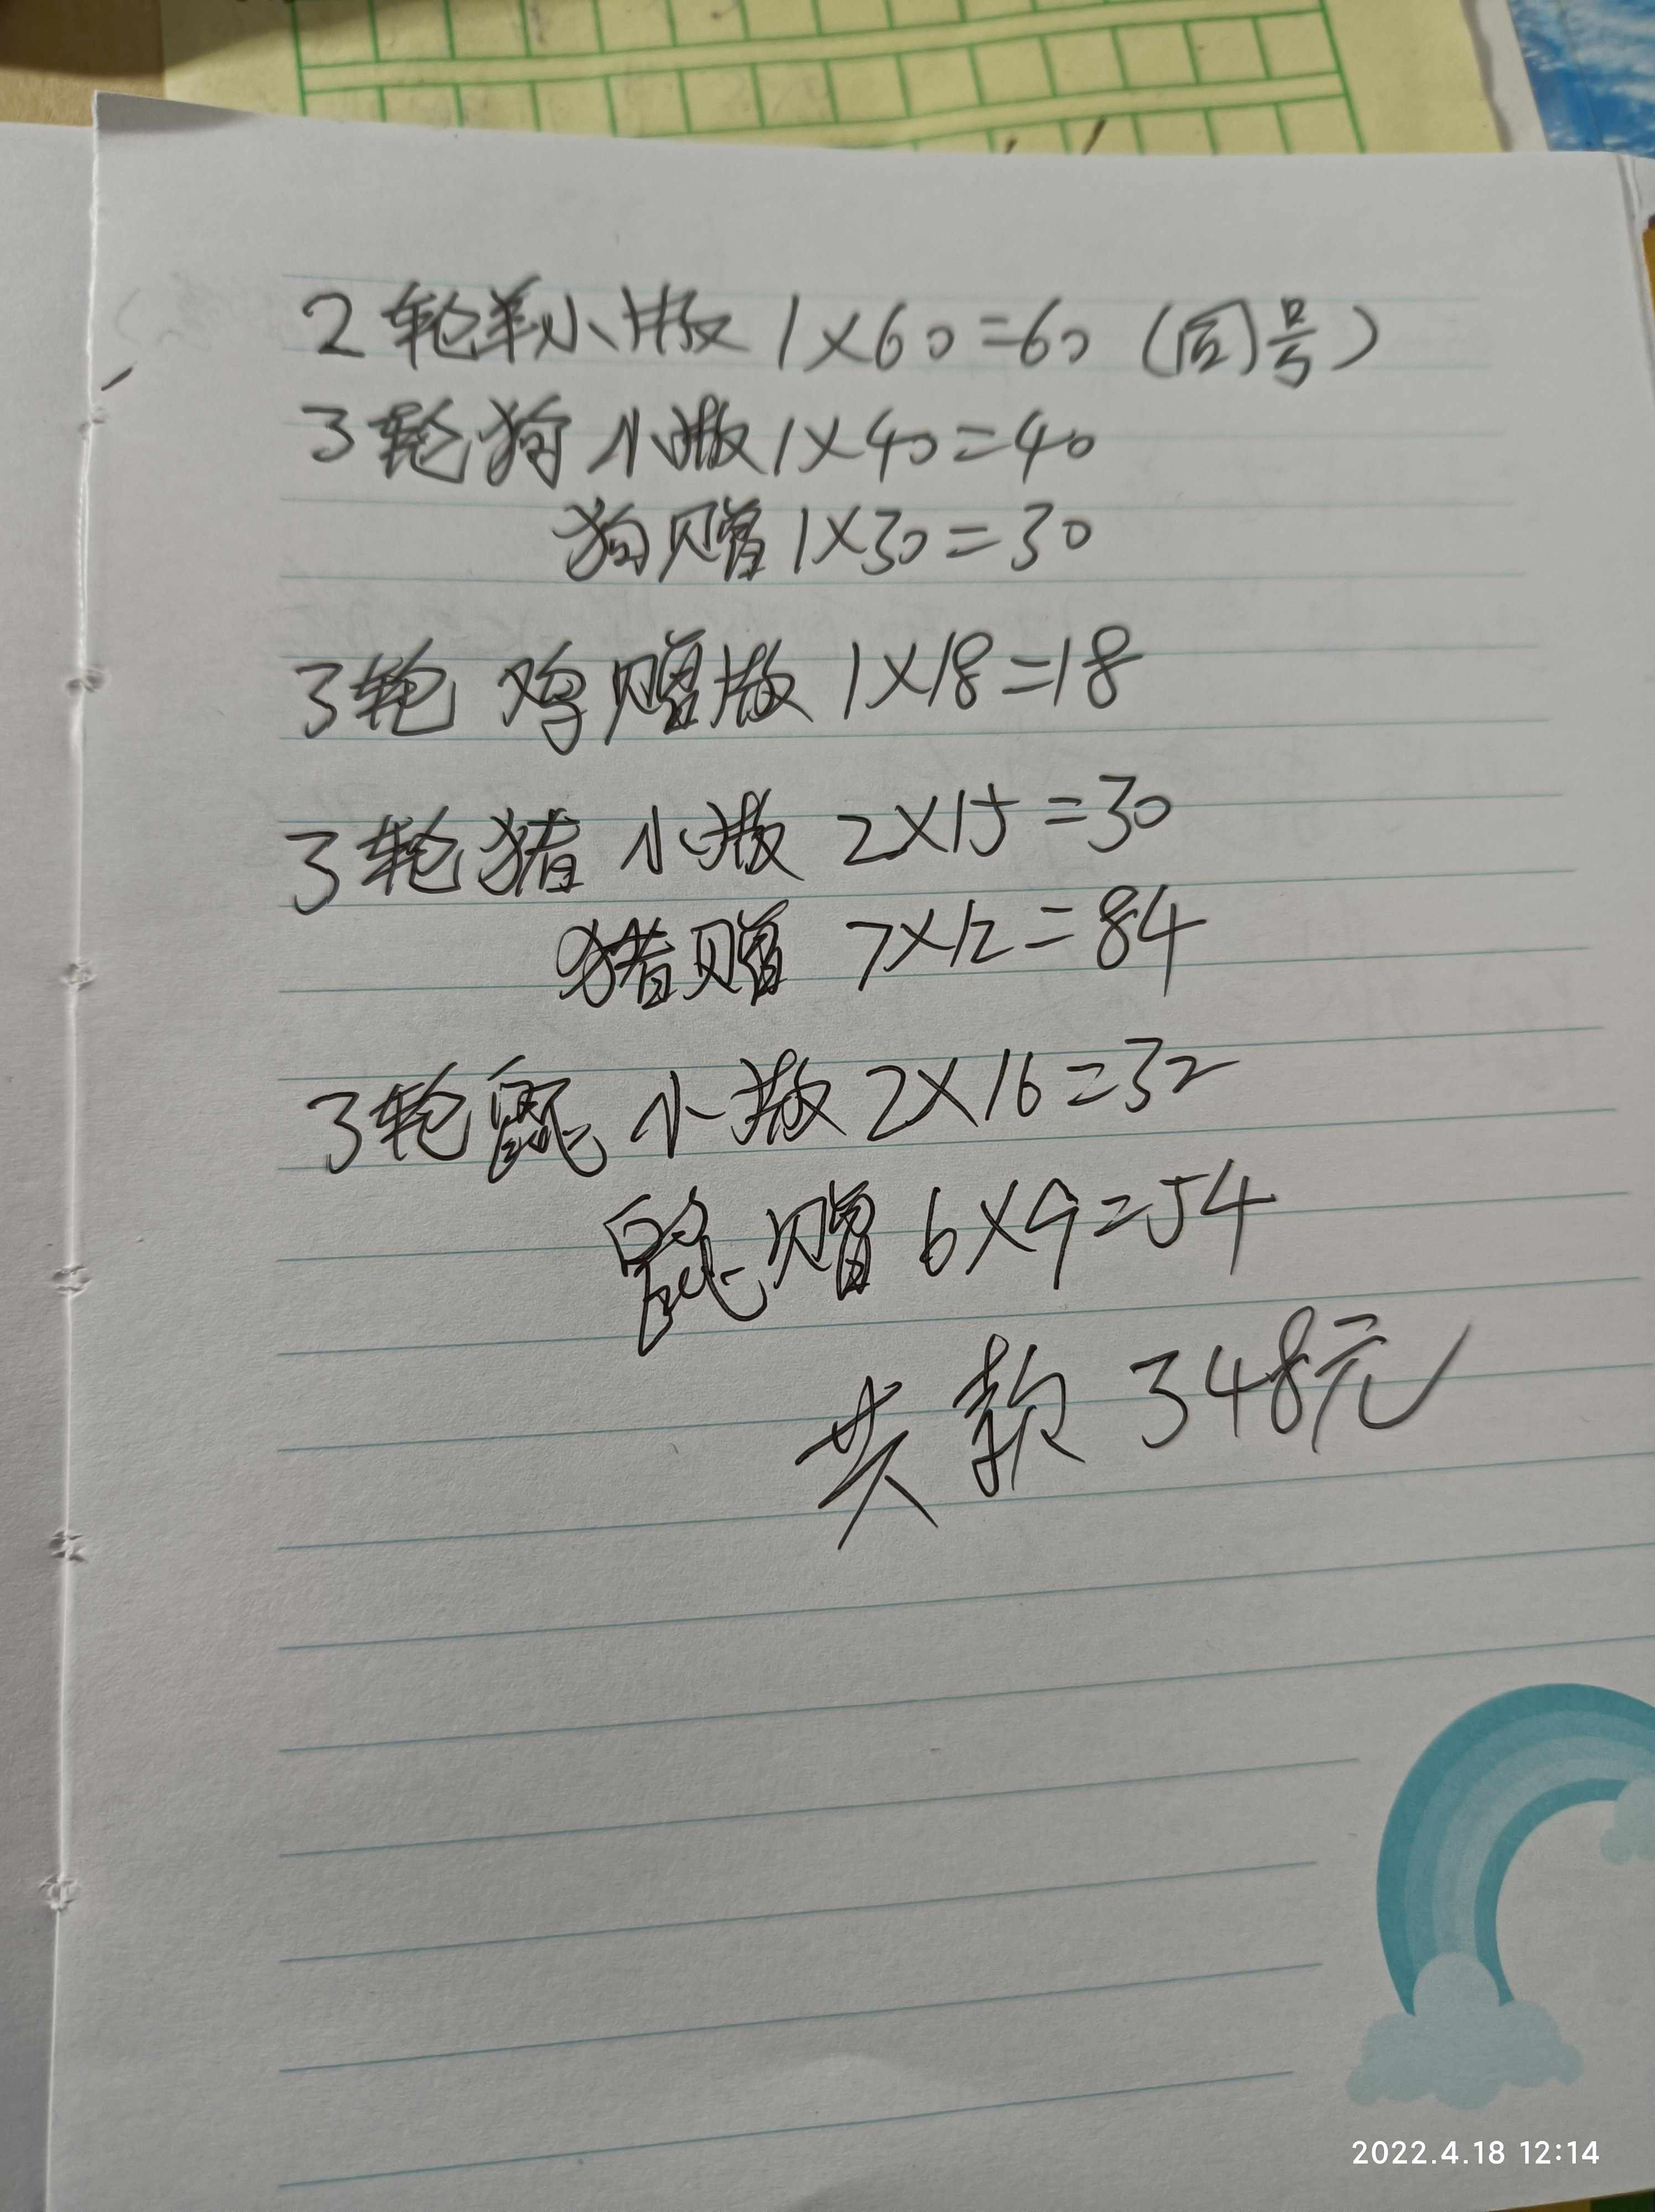 2轮羊小版 1×60=60 (同号)
3轮狗小版 1×40=40
狗赠 1×30=30
3轮 鸡赠版 1×18=18
3轮猪 小版 2×15=30
猪赠 7×12=84
3轮鼠 小版 2×16=32
鼠赠 6×9=54
共款 348元
2022.4.18 12:14